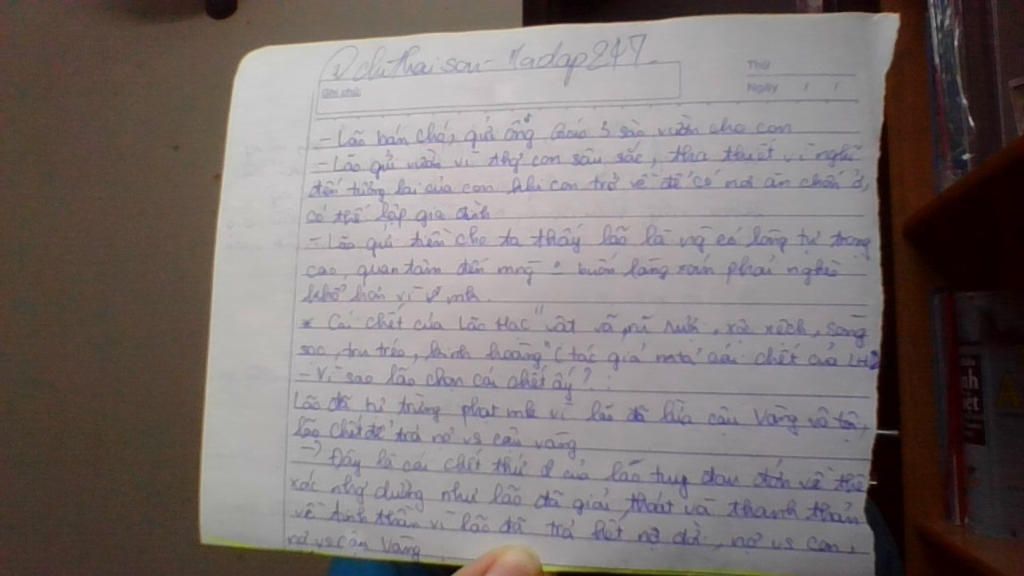 chithaison - Madap247
Ghi chú
Thứ
Ngày / /
- Lão bán chó, gửi ông Giáo 3 sào vườn cho con
- Lão gửi vườn vì thg con sâu sắc, tha thiết vì nghĩ
đến tương lai của con khi con trở về để có nơi ăn chốn ở,
có thể lập gia đình
- Lão gửi tiền cho ta thấy lão là ng có lòng tự trọng
cao, quan tâm đến mng buồn làng xóm phải nghèo
khổ hơn vì mh.
* Cái chết của Lão Hạc "vật vã, rũ rượi, xộc xệch, sòng
sọc, tru tréo, kinh hoàng" (tác giả mtả cái chết của LH)
- Vì sao lão chọn cái chết ấy?
Lão đã tự trừng phạt mh vì lão đã lừa cậu Vàng và
lão chết để trả nợ vs cậu vàng
-> Đây là cái chết thứ 2 của lão tuy đau đớn về thể
xác nhg dường như lão đã giải thoát và thanh thản
về tinh thần vì lão đã trả hết nợ đời, nợ vs con,
nợ vs cậu Vàng